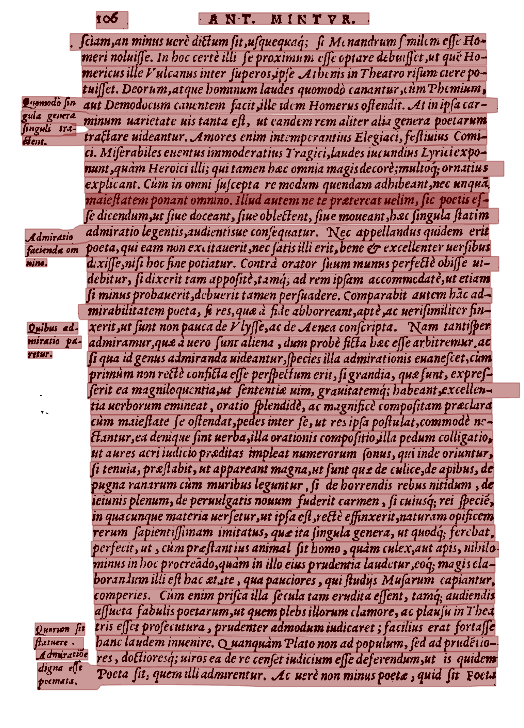 106
ANT. MINTVR.
sciam, an minus uerè dictum sit, usquequaq; si Menandrum similem esse Ho-
meri noluisse. In hoc certè illi se proximum esse optare debuisset, ut quē Ho-
mericus ille Vulcanus inter superos, ipse Athenis in Theatro risum ciere po-
tuisset. Deorum, atque hominum laudes quomodò canantur, cùm Phemium,
Quomodo sin
aut Demodocum canentem facit, ille idem Homerus ostendit. At in ipsa car-
gula genera
minum uarietate uis tanta est, ut eandem rem aliter alia genera poetarum
singuli tra-
tractare uideantur. Amores enim intemperantius Elegiaci, festiuius Comi-
ctent.
ci. Miserabiles euentus immoderatius Tragici, laudes iucundius Lyrici expo-
nunt, quàm Heroici illi; qui tamen hæc omnia magis decorè; multoq; ornatius
explicant. Cùm in omni suscepta re modum quendam adhibeant, nec unquā
maiestatem ponant omnino. Illud autem ne te prætercat uelim, sic poetis es-
se dicendum, ut siue doceant, siue oblectent, siue moueant, hæc singula statim
Admiratio
admiratio legentis, audientisue consequatur. Nec appellandus quidem erit
facienda om
poeta, qui eam non excitauerit, nec satis illi erit, bene & excellenter uersibus
nino.
dixisse, nisi hoc sine potiatur. Contrà orator suum munus perfectè obisse ui-
debitur, si dixerit tam appositè, tamq; ad rem ipsam accommodatè, ut etiam
si minus probauerit, debuerit tamen persuadere. Comparabit autem hāc ad-
mirabilitatem poeta, si res, quæ à fide abhorreant, aptè, ac uerisimiliter fin-
Quibus ad-
xerit, ut sunt non pauca de Vlysse, ac de Aenea conscripta. Nam tantisper
miratio pa-
admiramur, quæ à uero sunt aliena, dum probè ficta hæc esse arbitremur, ac
retur.
si qua id genus admiranda uideantur, species illa admirationis euanescet, cùm
primùm non rectè conficta esse perspectum erit, si grandia, quæ sunt, expres-
serit ea magniloquentia, ut sententiæ uim, grauitatemq; habeant, excellen-
tia uerborum emineat, oratio splendidè, ac magnificè compositam præclara
cùm maiestate se ostendat, pedes inter se, ut res ipsa postulat, commodè ne-
ctantur, ea denique sint uerba, illa orationis compositio, illa pedum colligatio,
ut aures acri iudicio præditas impleat numerorum sonus, qui inde oriuntur,
si tenuia, præstabit, ut appareant magna, ut sunt quæ de culice, de apibus, de
pugna ranarum cùm muribus leguntur, si de horrendis rebus nitidum, de
ieiunis plenum, de peruulgatis nouum fuderit carmen, si cuiusq; rei speciē,
in quacunque materia uersetur, ut ipsa est, rectè effinxerit, naturam opificem
rerum sapientissimam imitatus, quæ ita singula genera, ut quodq; ferebat,
perfecit, ut, cùm præstantius animal sit homo, quàm culex, aut apis, nihilo
minus in hoc procreādo, quàm in illo eius prudentia laudetur, eoq; magis ela-
borandum illi est hac ætate, qua pauciores, qui studus Musarum capiantur,
comperies. Cùm enim prisca illa secula tam erudita essent, tamq; audiendis
assueta fabulis poetarum, ut quem plebs illorum clamore, ac plausu in Thea
Quorum sit
tris esset prosecutura, prudenter admodum iudicaret; facilius erat fortasse
statuere
hanc laudem inuenire. Quanquàm Plato non ad populum, sed ad prudētio-
Admiratiōe
res, doctioresq; uiros ea de re censet iudicium esse deferendum, ut is quidem
digna esse
Poeta sit, quem illi admirentur. Ac uerè non minus poetæ, quid sit Poeta
poemata.